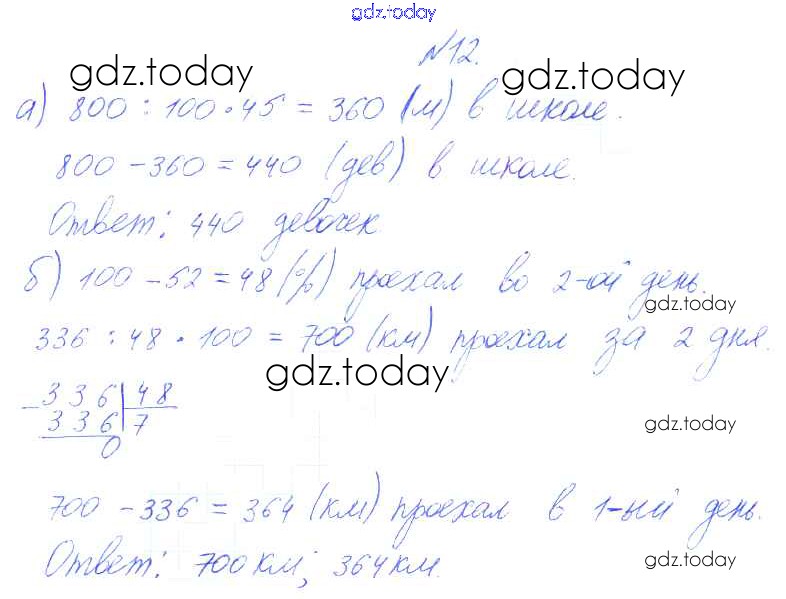 gdz.today
№12.
gdz.today gdz.today
а) 800 : 100 · 45 = 360 (м) в школе.
800 - 360 = 440 (дев) в школе.
Ответ: 440 девочек
б) 100 - 52 = 48 (%) проехал во 2-ой день.
gdz.today
336 : 48 · 100 = 700 (км) проехал за 2 дня.
gdz.today
336 48
336 7
0
gdz.today
700 - 336 = 364 (км) проехал в 1-ый день.
Ответ: 700 км; 364 км.
gdz.today